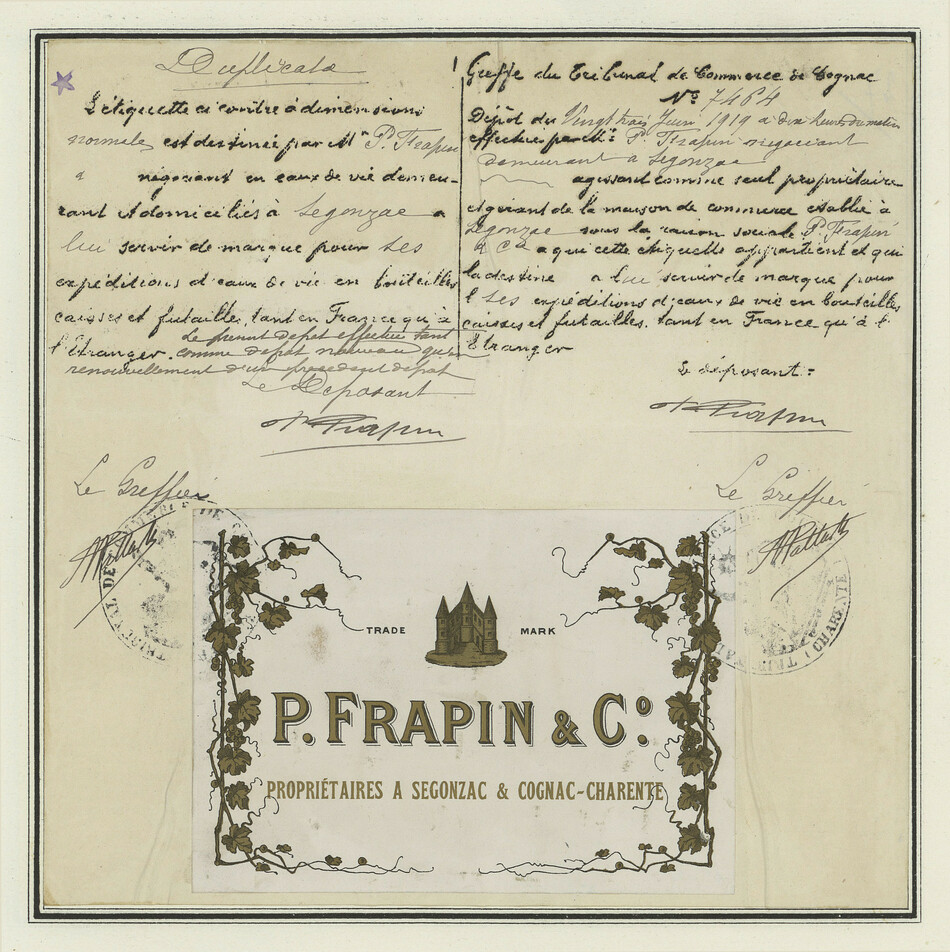 Duplicata
L'étiquette ci contre à dimensions
normales est destinée par Mr P. Frapin
négociant en eaux de vie demeu-
rant et domiciliés à Segonzac a
lui servir de marque pour ses
expéditions d'eaux de vie en bouteilles
caisses et futailles, tant en France qu'à
l'étranger. Le présent dépot effectué tant
comme dépot nouveau qu'en
renouvellement d'un précédent dépot
Le Déposant
P. Frapin
Le Greffier
Greffe du Tribunal de Commerce de Cognac
No 7464
Dépôt du Vingt trois Juin 1919 à dix heures du matin
effectué par Mr: P. Frapin négociant
demeurant à Segonzac
agissant comme seul propriétaire
et gérant de la maison de commerce établie à
Segonzac sous la raison sociale P. Frapin
& Co a qui cette étiquette appartient et qui
la destine a lui servir de marque pour
ses expéditions d'eaux de vie en bouteilles
caisses et futailles. tant en France qu'à l'
Etranger
Le déposant:
P. Frapin
Le Greffier
TRIBUNAL DE
CHARENTE
TRADE MARK
P. FRAPIN & Co.
PROPRIÉTAIRES A SEGONZAC & COGNAC-CHARENTE